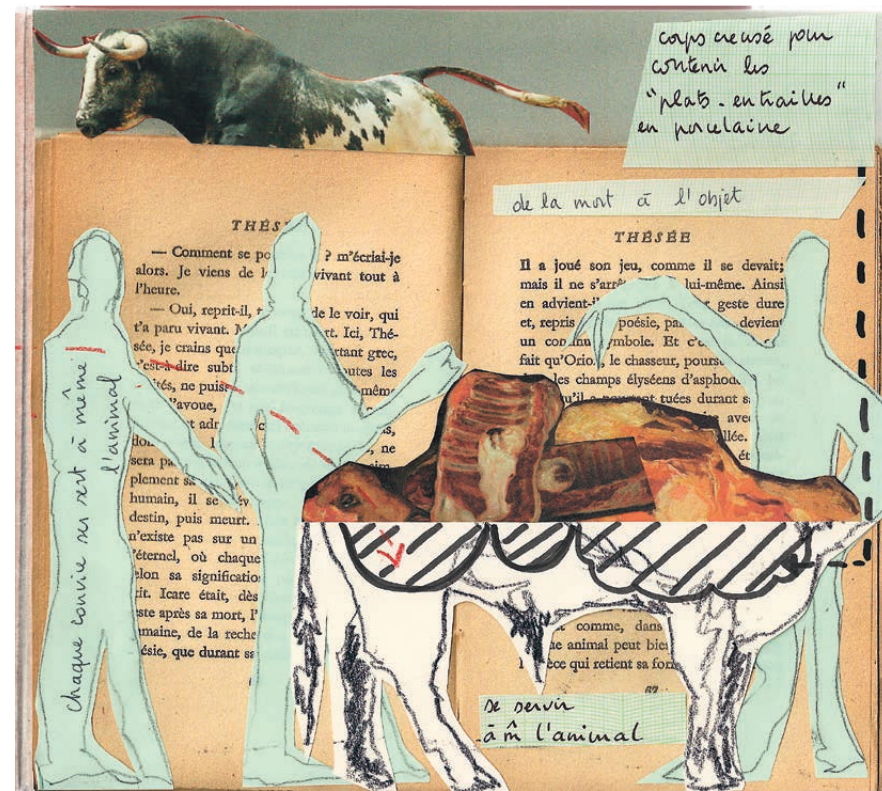 corps creusé pour
contenir les
"plats-entrailles"
en porcelaine
de la mort à l'objet
THÉS
— Comment se po ? m'écriai-je
alors. Je viens de l vivant tout à
l'heure.
— Oui, reprit-il, t de le voir, qui
t'a paru vivant. M rt. Ici, Thé-
sée, je crains que rtant grec,
c'est-à-dire subt outes les
ités, ne puiss même
l'avoue,
t adr c s,
do l , ne
sera pa
plement sa
humain, il se v
destin, puis meurt.
n'existe pas sur un
'éternel, où chaque
elon sa significatio
rit. Icare était, dès
ste après sa mort, l'
umaine, de la reche
ésie, que durant sa
chaque convive se sert à même
l'animal
THÉSÉE
Il a joué son jeu, comme il se devait;
mais il ne s'arr lui-même. Ainsi
en advient-il geste dure
et, repris poésie, pa devient
un con u mbole. Et c'
fait qu'Orion, le chasseur, pours
les champs élyséens d'asphod
qu'il a tuées durant sa
avec
llée.
ét
comme, dans
e animal peut bie
èce qui retient sa for
67
se servir
à m̂ l'animal